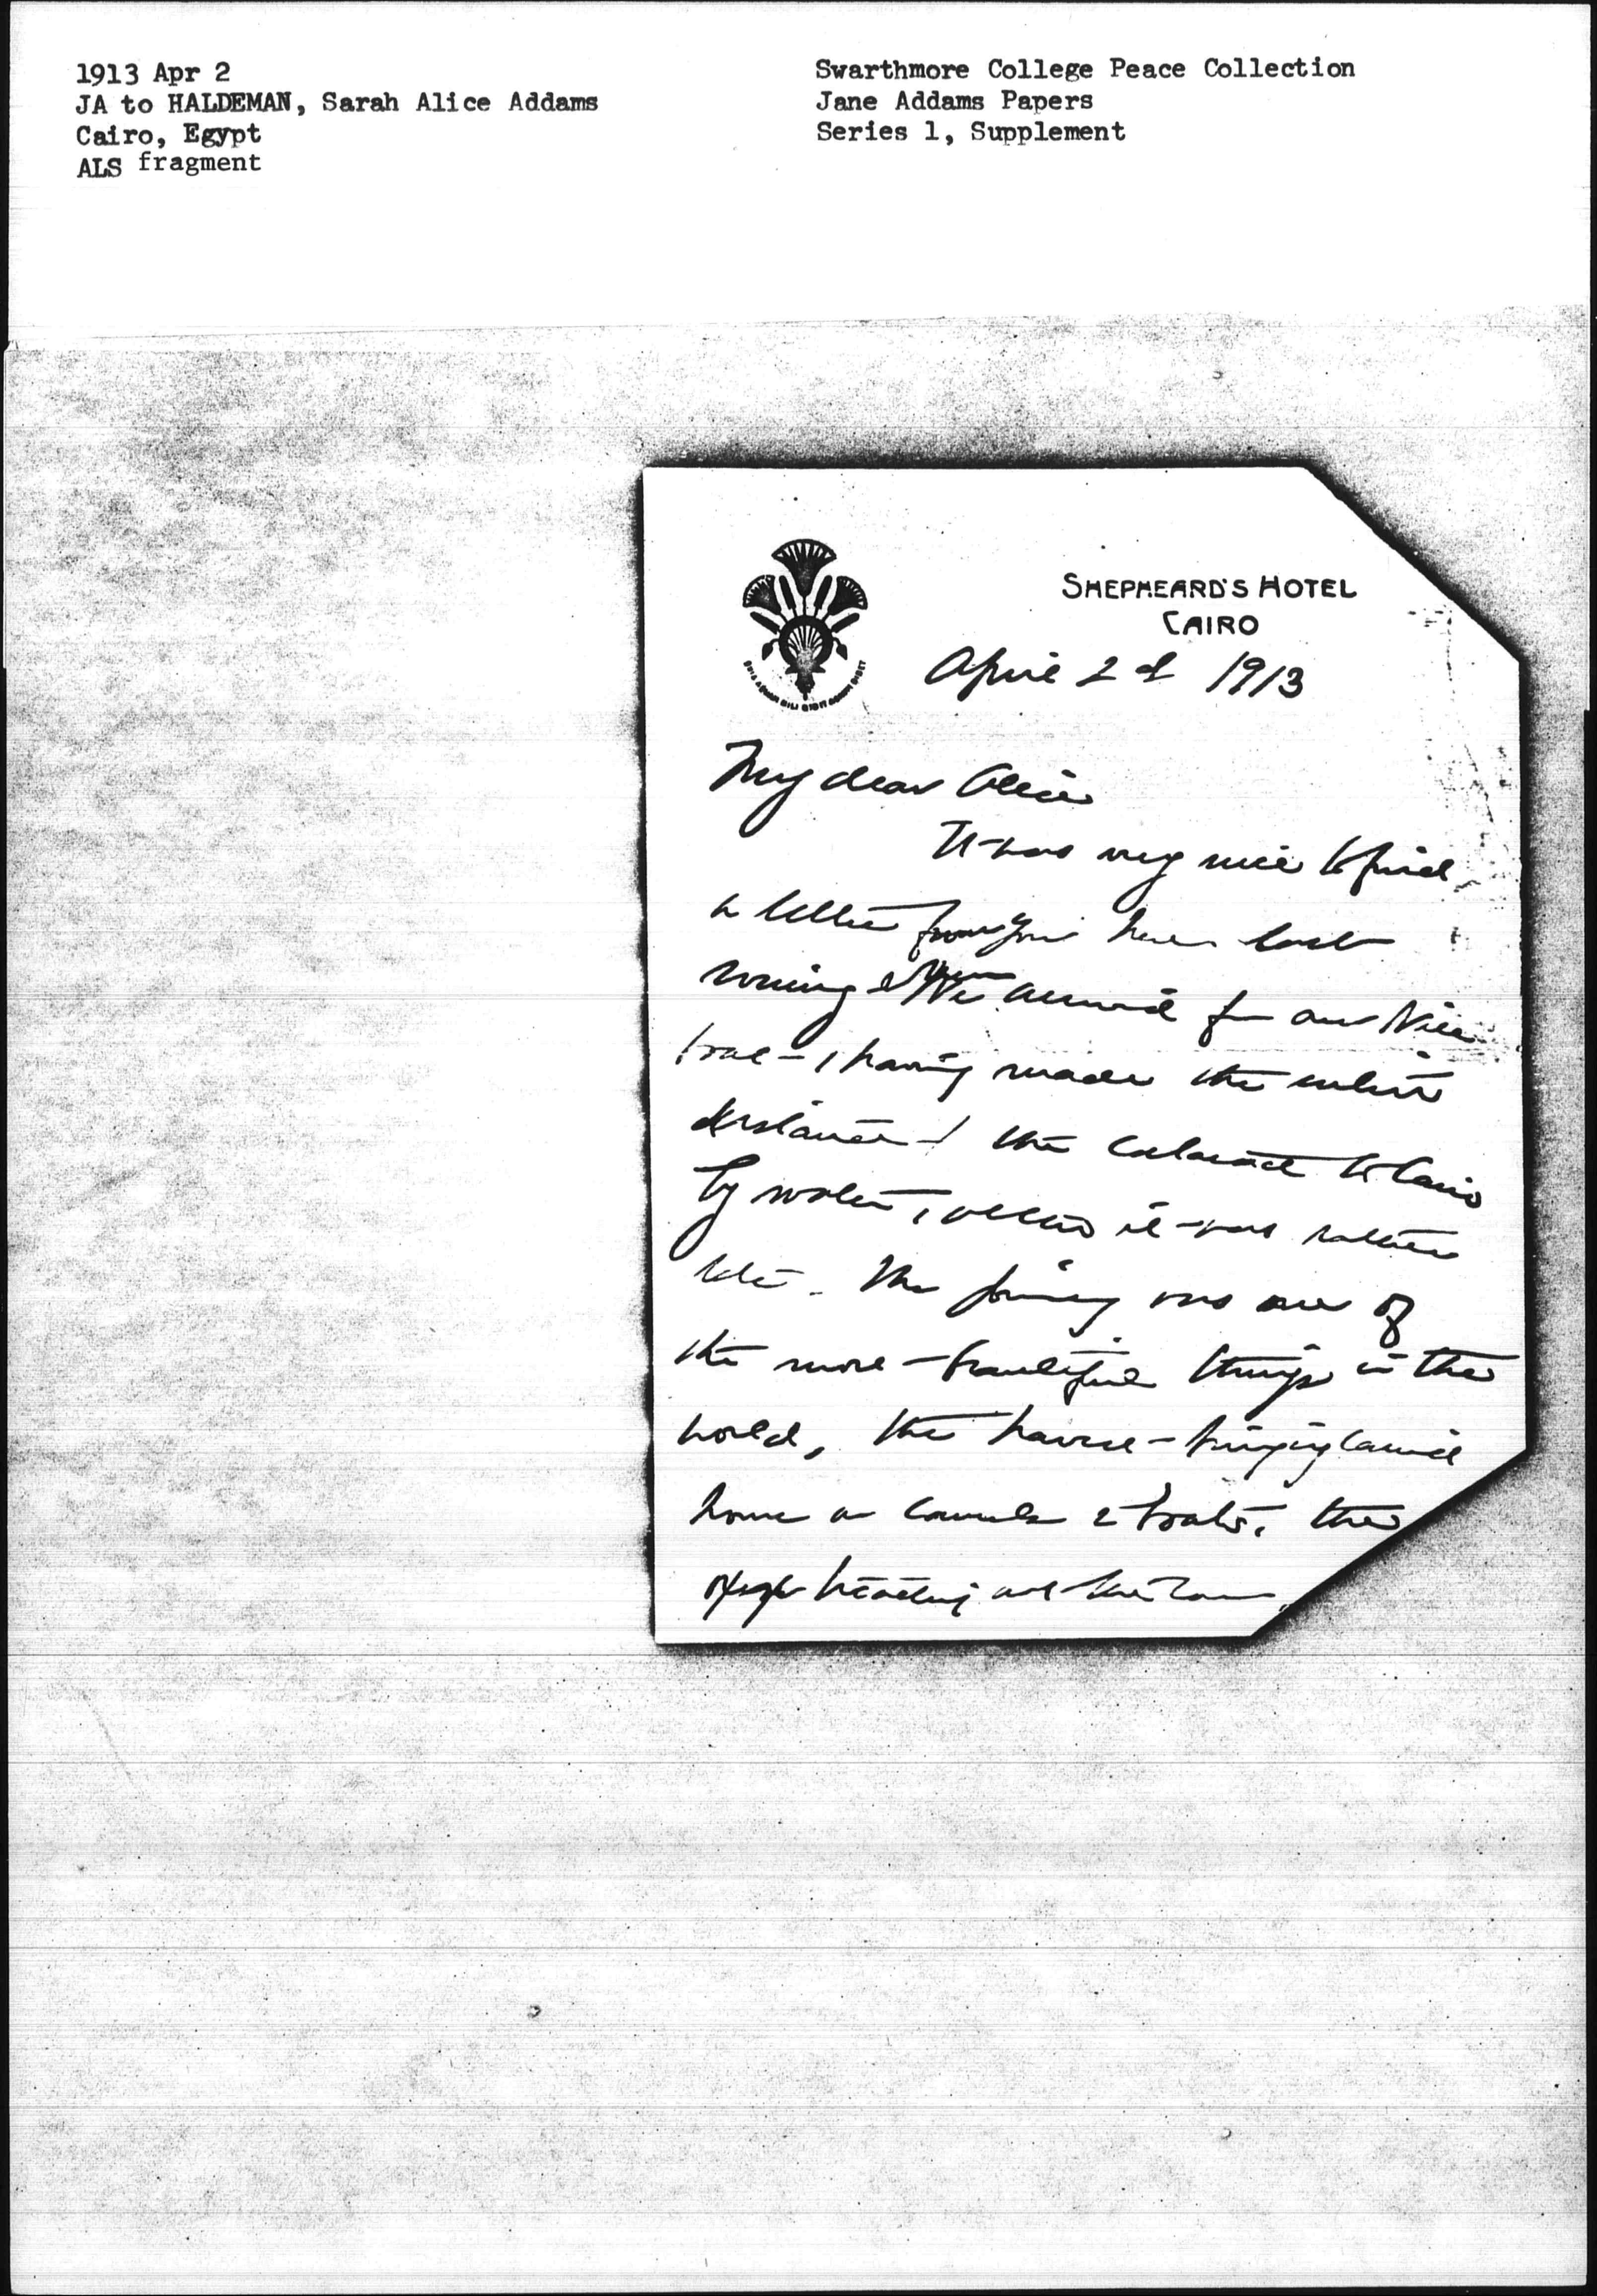 1913 Apr 2
JA to HALDEMAN, Sarah Alice Addams
Cairo, Egypt
ALS fragment
Swarthmore College Peace Collection
Jane Addams Papers
Series 1, Supplement
SHEPHEARD'S HOTEL
CAIRO
April 2d 1913
My dear Alice
It was very nice to find
a letter from you here last
evening when we arrived from our Nile
boat, having made the entire
distance the cataract to Cairo
by water, altho it was rather
late. The journey was one of
the most beautiful things in the
world, the harvest bringing
home on camels & boats, the